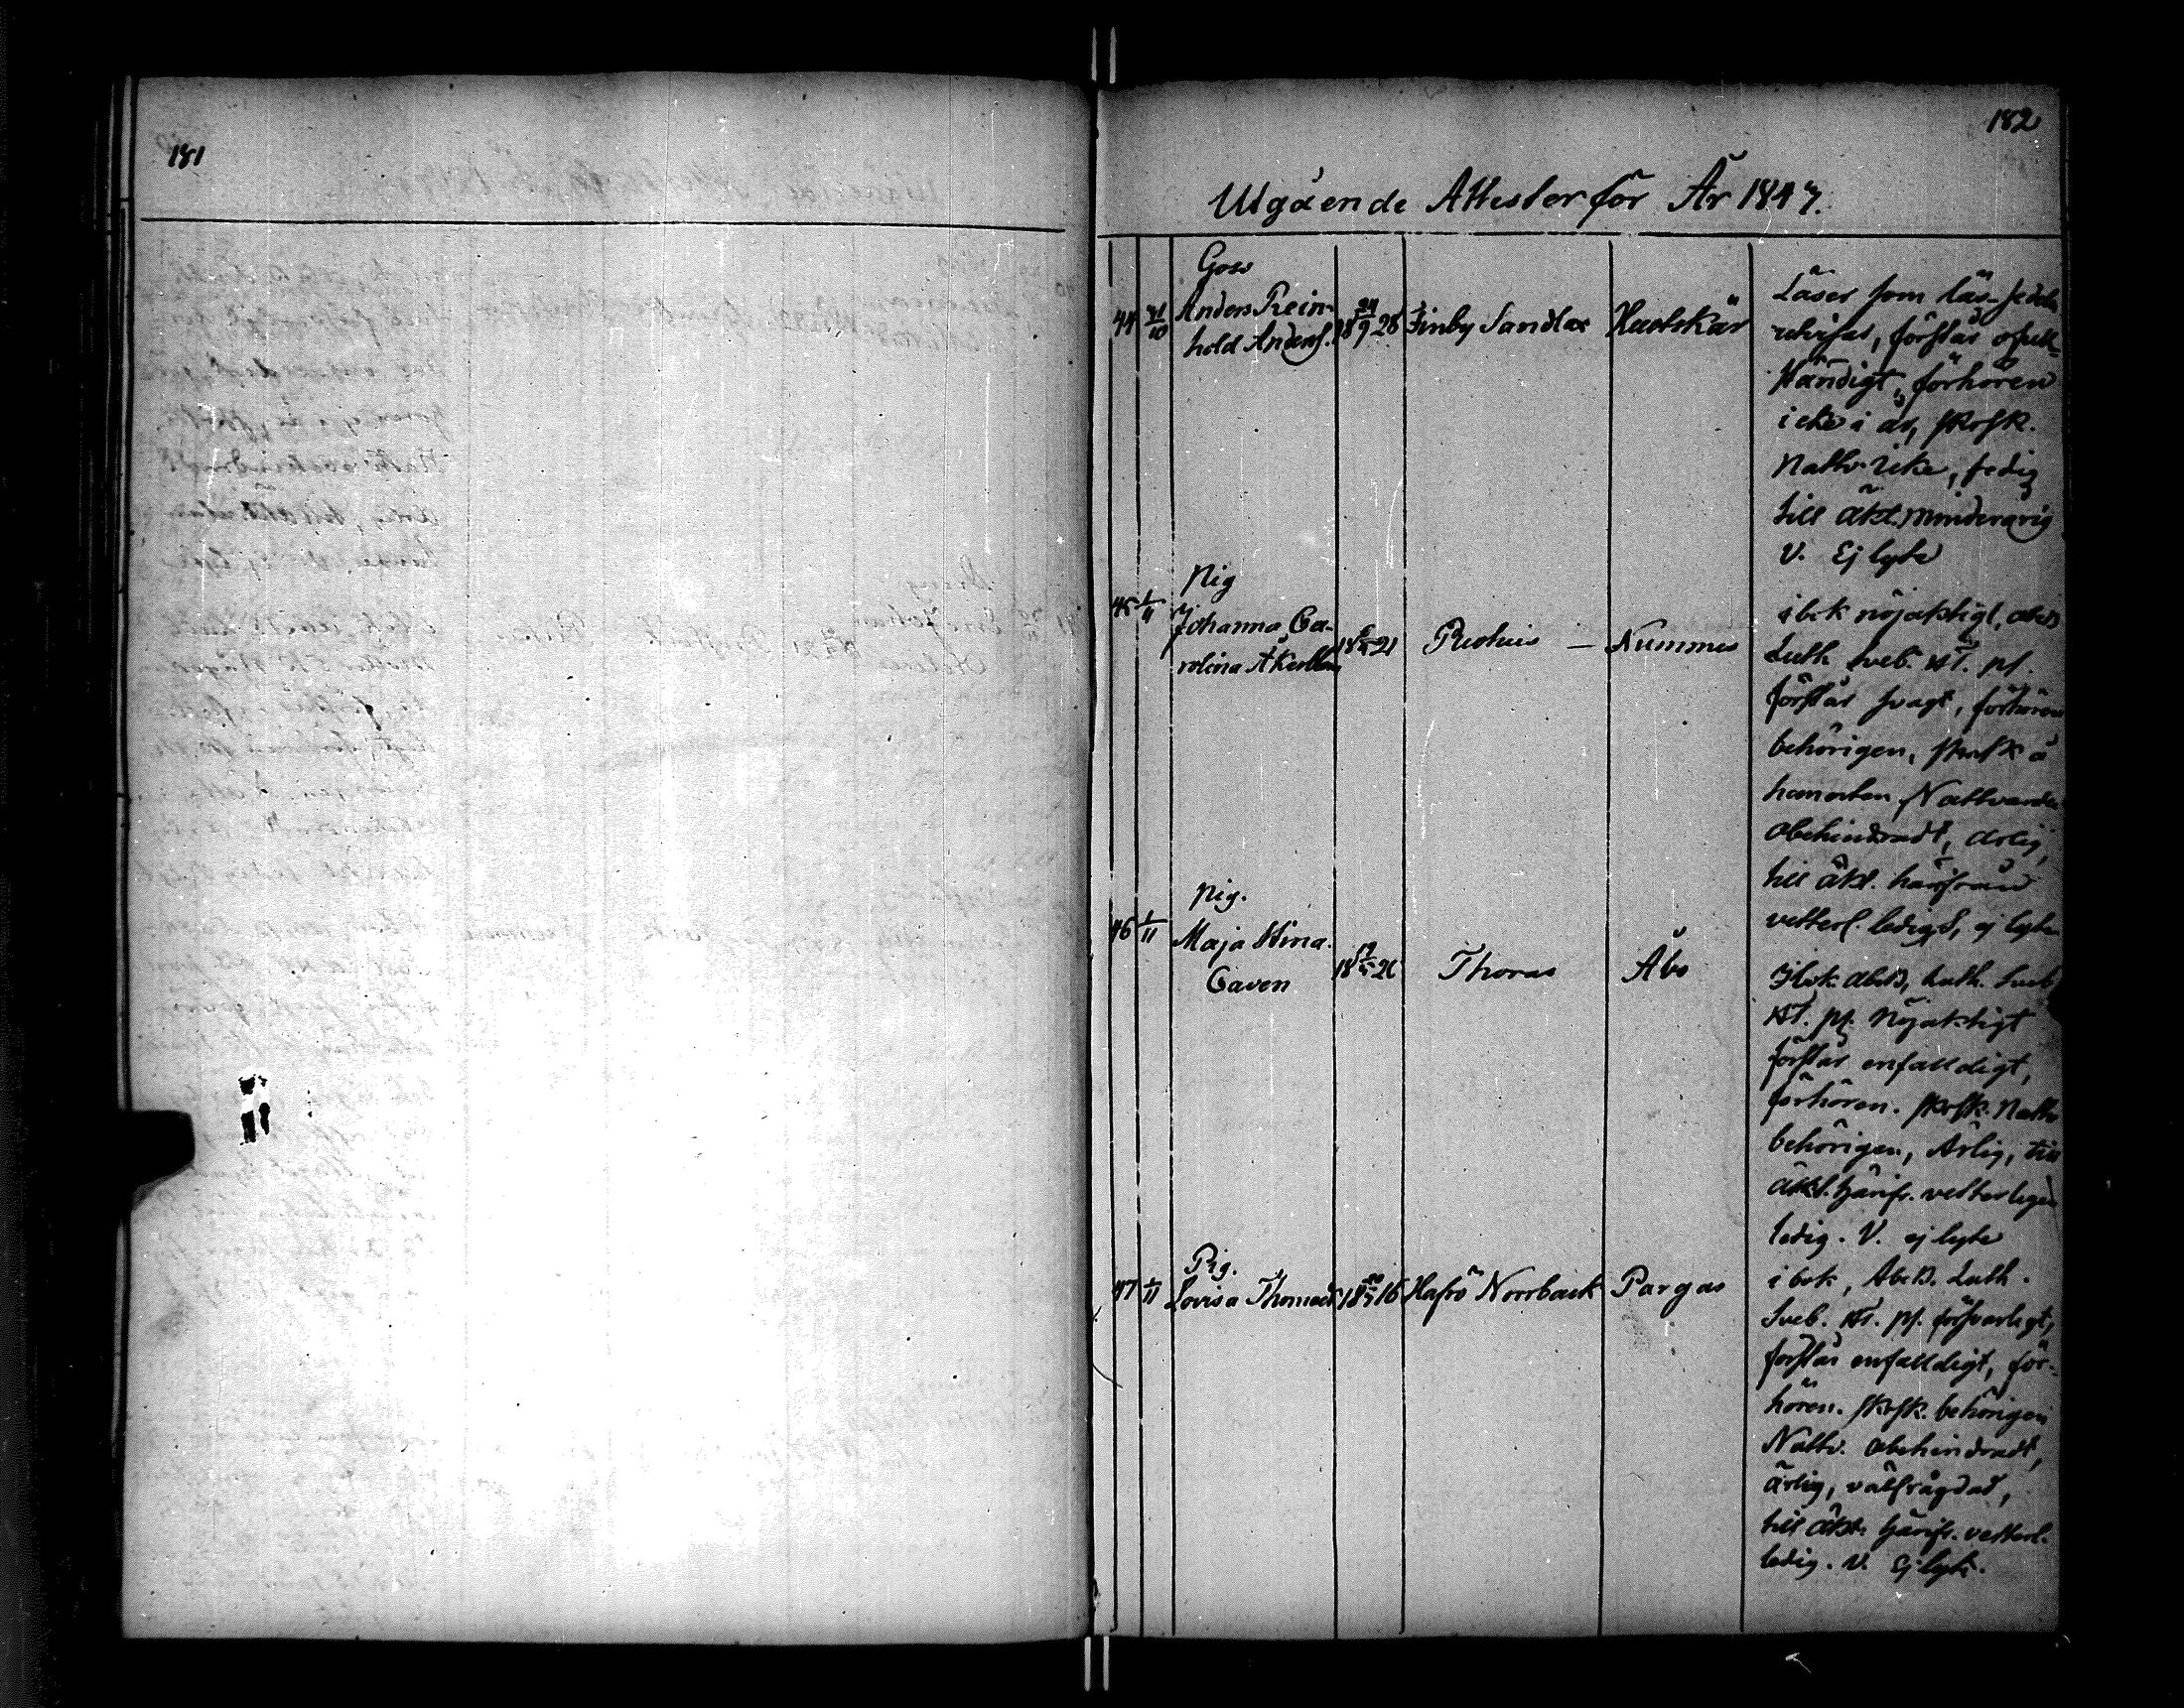 181
182
Utgående Attester för År 1847.
44 21/10 Goss
Anders Rein-
hold Anders. 18 24/9 28 Finby Sandlax
Läser som läs-sedeln
utvisar, förstår ofull-
ständigt, förhören
icke i år, skrfsk.
Nattv. icke, ledig
till äkt. minderårig
V. Ej lyte
45 1/11 Pig
Johanna Ca-
rolina 21 — Nummis
i bok nöjaktigt, abcd
Luth. Sveb. HT. ps.
förstår svagt, förhören
behörigen, skrfsk å
hemorten Nattvarden
obehindradt, ärlig,
till äkt. härifrån
vetterl. ledig, ej lyte
46 1/11 pig.
Maja Stina
Caven Åbo
I bok abcd, Luth. Sveb
HT. ps. Nöjaktigt
förstår enfalldigt,
förhören. skrfsk. Nattv
behörigen, Ärlig, till
äkt. härifr. vetterligen
ledig. V. ej lyte
47 1/11 Pig.
Lovisa Thomasd 16 Norrback Pargas
i bok, Abcd. Luth.
Sveb. HT. ps. försvarligt,
förstår enfalldigt, för-
hören. skrfsk. behörigen
Nattv. obehindradt,
ärlig, välfrägdad,
till äkt. härifr. vetterl.
ledig. V. Ej lyte.